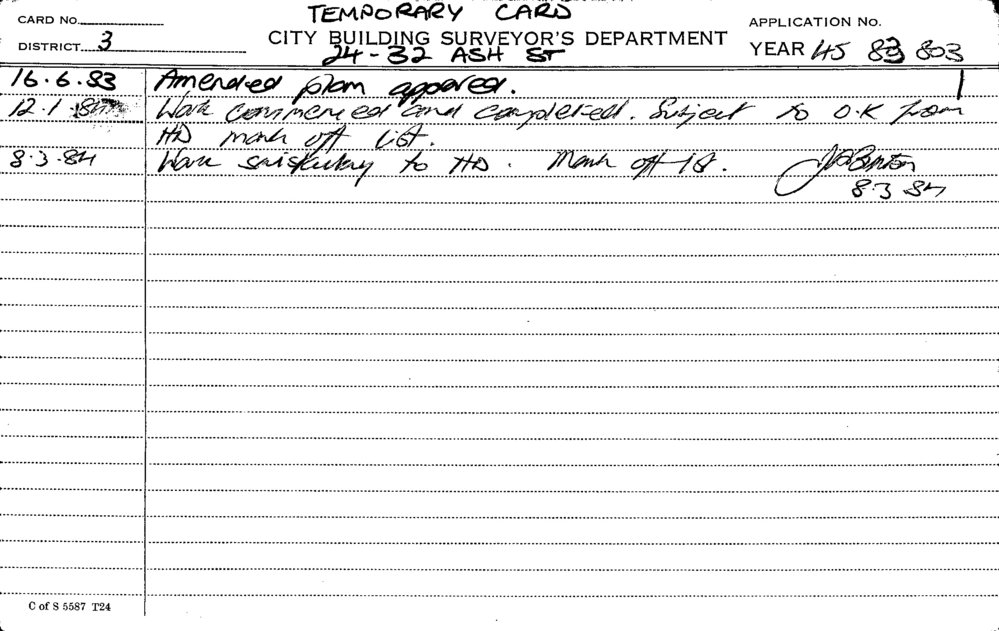 TEMPORARY CARD
CARD No.
APPLICATION No.
DISTRICT 3
CITY BUILDING SURVEYOR'S DEPARTMENT
YEAR 45 83 803
24-32 ASH ST
16.6.83 Amended plan appored.
12.1.84 Work commenced and completed. Subject to O.K from
HD mark off list.
8.3.84 Work satisfactory to HD. Mark off
8.3.84
C of S 5587 T24